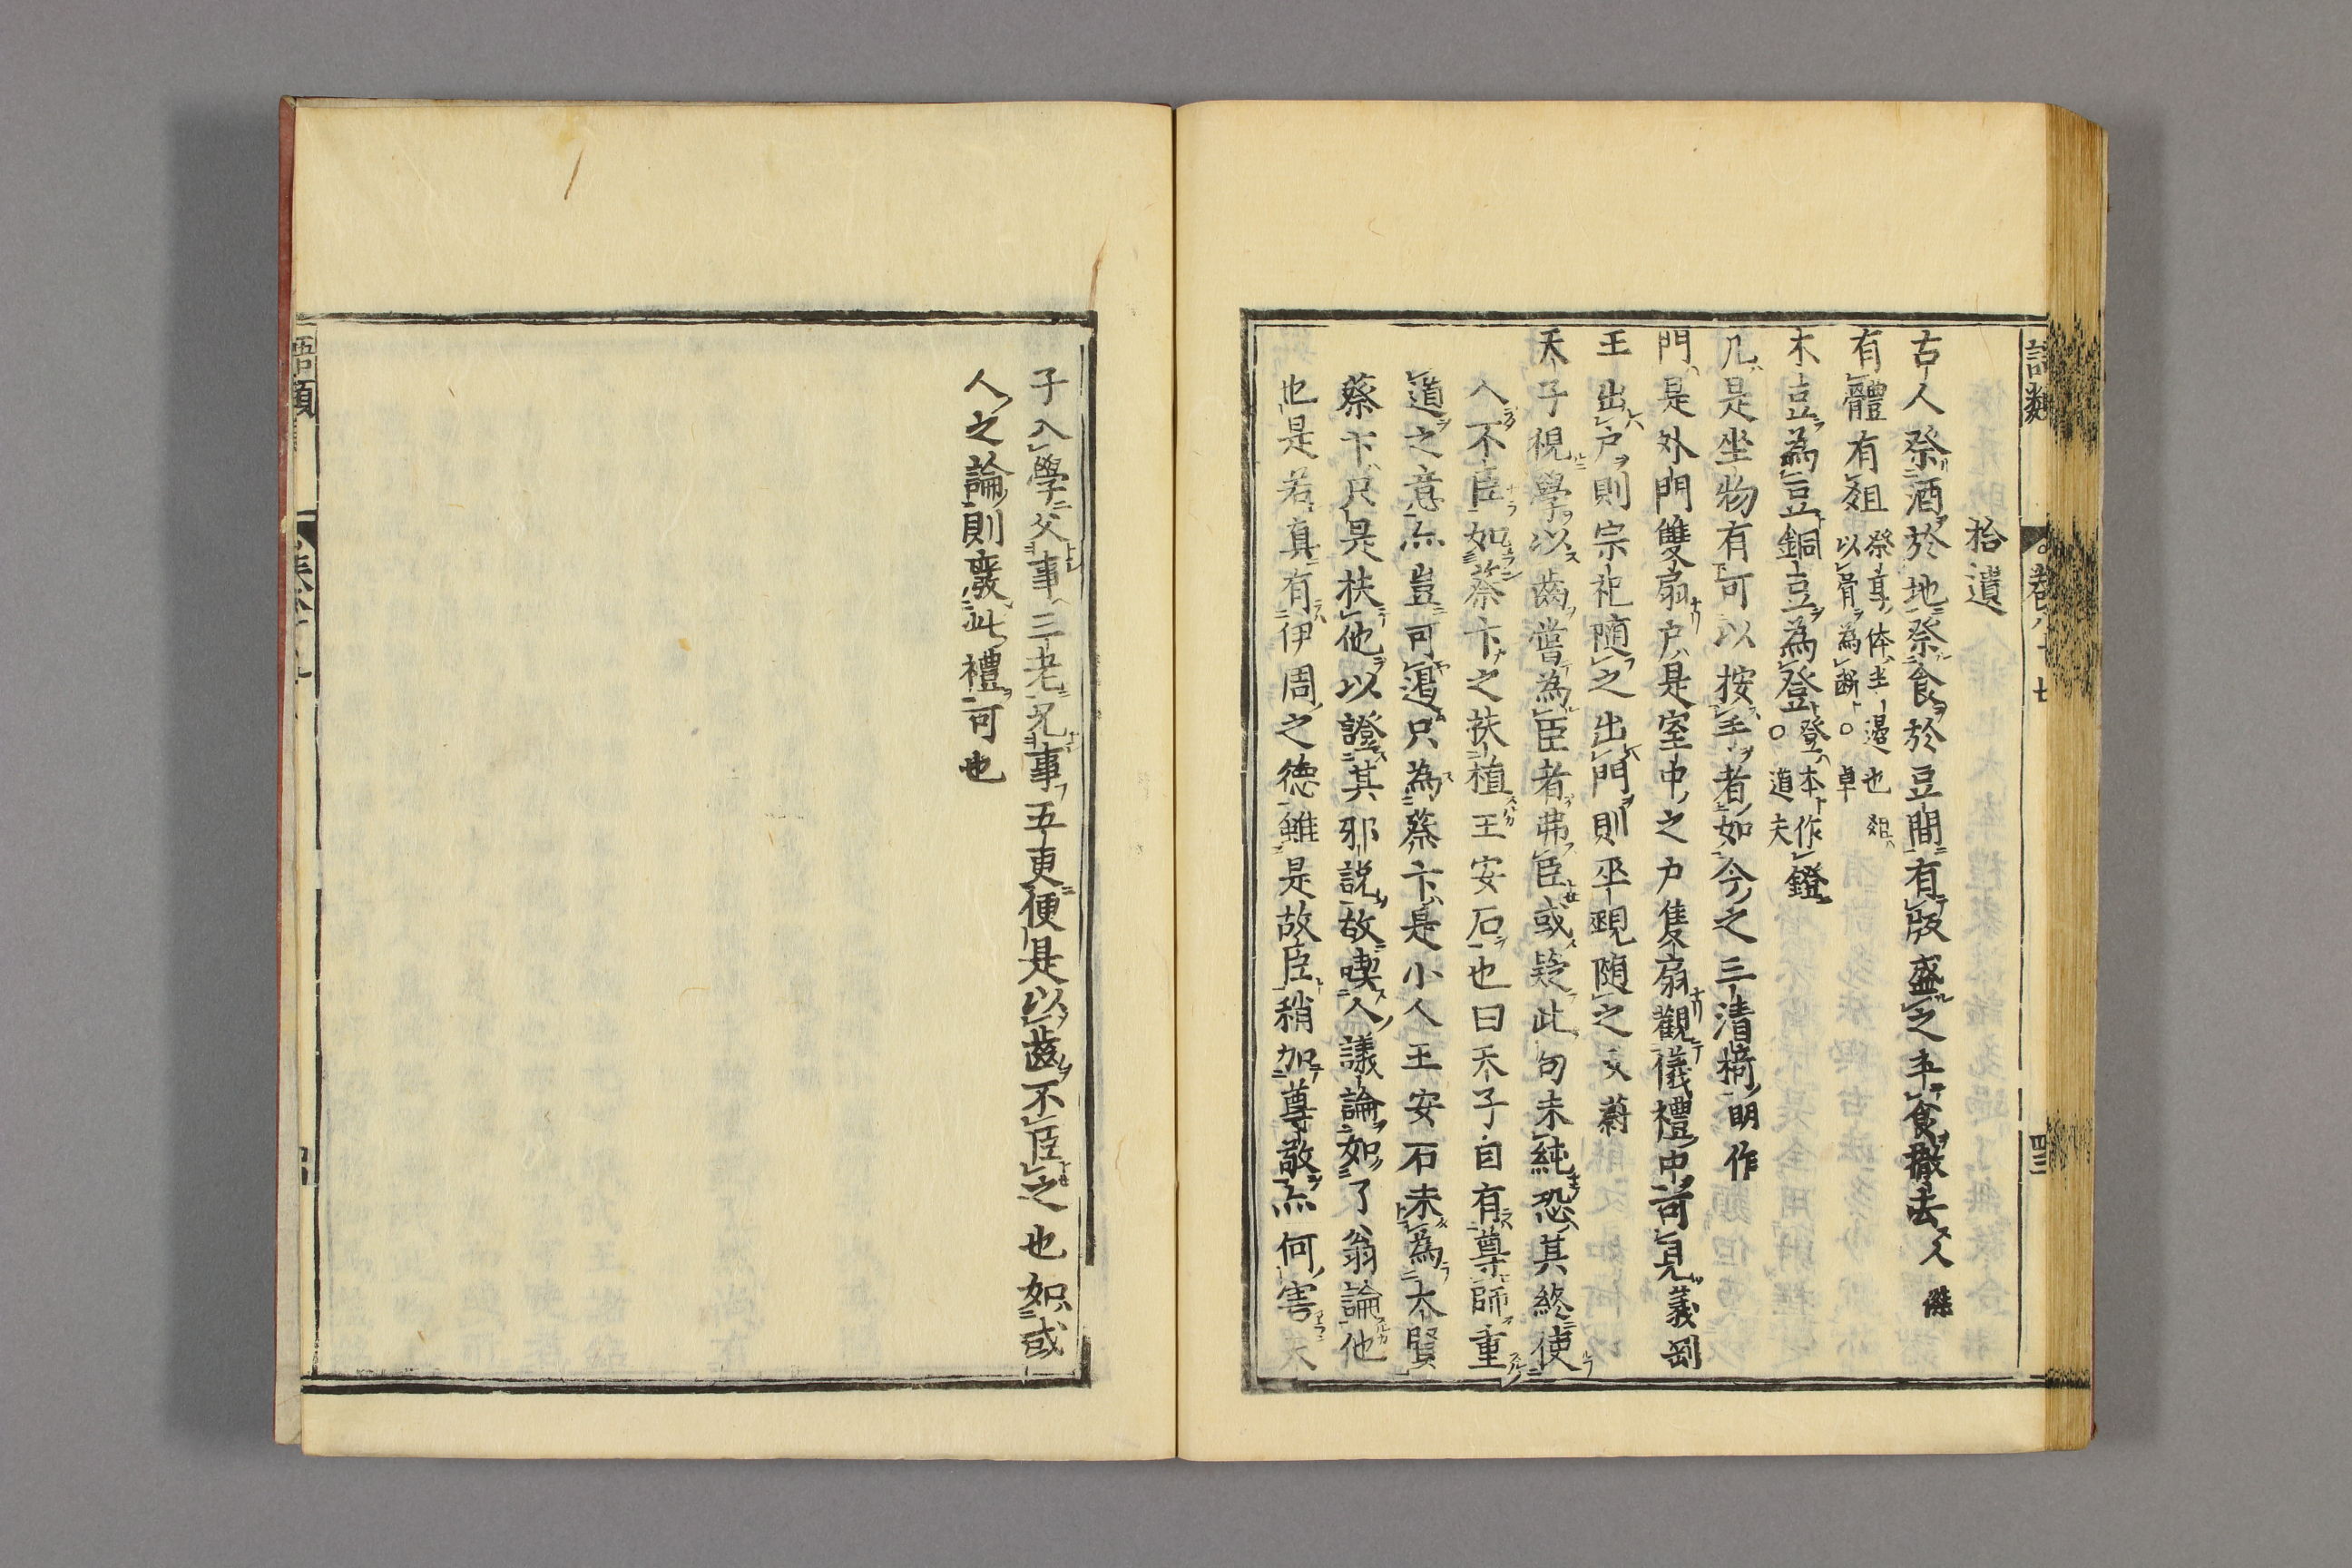 語類 卷八十七 四三
拾遺
古人祭酒於地祭食於豆間有版盛之卒食撤去人傑
有體有俎祭享体半邊也俎以骨為斷○卓
木豆為豆銅豆為登登本作鐙○道夫
几是坐物有可以按手者如今之三清椅明作
門是外門雙扇戶是室中之戶隻扇觀儀禮中可見義剛
王出戶則宗祀隨之出門則巫覡隨之文蔚
天子視學以齒嘗為臣者弗臣或疑此句未純恐其終使
人不臣如蔡卞之扶植王安石也曰天子自有尊師重
道之意亦豈可遏只為蔡卞是小人王安石未為大賢
蔡卞只是扶他以證其邪說故喫人議論如了翁論他
也是若真有伊周之德雖是故臣稍加尊敬亦何害天
子入學父事三老兄事五更便是以齒不臣之也如或
人之論則廢此禮可也
語類